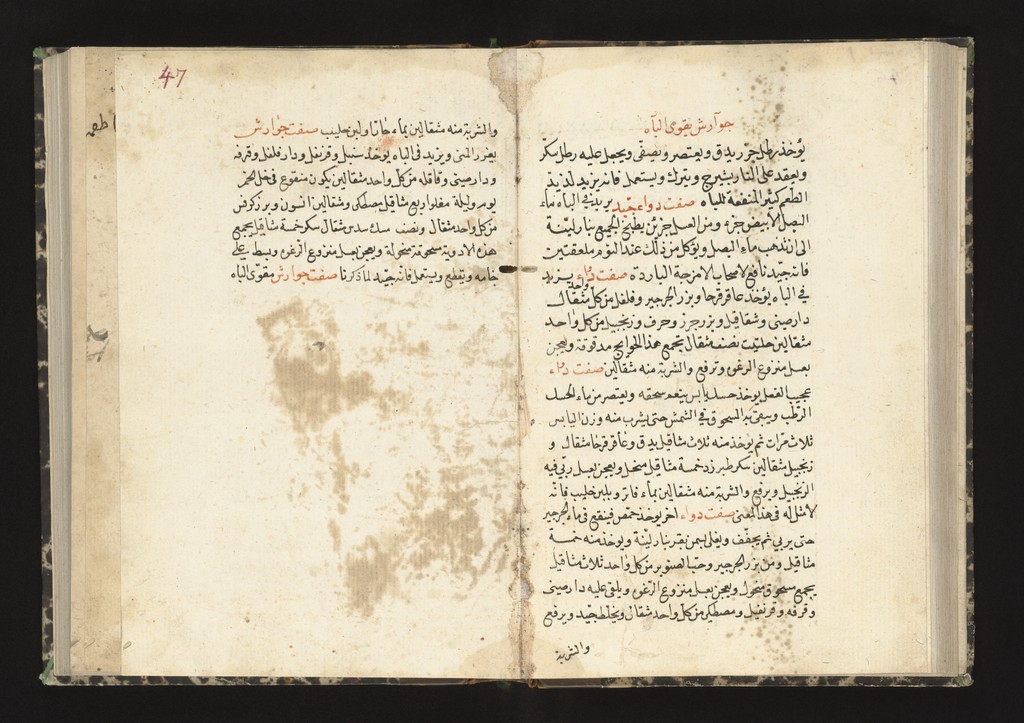 جوارش يقوى الباه
يؤخذ رطل جزر يدق ويعتصر ويصفى ويجعل عليه رطل سكر
ويعقد على النار بشيرج ويترك ويستعمل فانه يزيد لذيذ
الطعم كثير المنفعة للباه صفت دواء جيد يزيد في الباه ماء
البصل الأبيض جزء ومن العسل جزئين يطبخ الجميع بنار لينة
الى ان تذهب ماء البصل ويؤكل من ذلك عند النوم ملعقتين
فانه جيد نافع لاصحاب الامزجة الباردة صفت دواء يزيد
في الباه يؤخذ عاقر قرحا وبزر الجرجير وفلفل من كل واحد مثقال
دارصينى وشقاقل وبزر جزر وحرف وزنجبيل من كل واحد
مثقالين حلتيت نصف مثقال تجمع هذا الحوايج مدقوقة ويعجن
بعسل منزوع الرغوه وترفع والشربة منه مثقالين صفت دواء
عجيب الفعل يوخذ حسك يابس ينعم سحقه ويعتصر من ماء الحسك
الرطب ويسقى به المسحوق في الشمش حتى يشرب منه وزن اليابس
ثلاث مرات ثم يوخذ منه ثلاث مثاقيل يدق وعاقر قرحا مثقال و
زنجبيل مثقالين سكر طبرزد خمسة مثاقيل منخل ويعجن بعسل ربى فيه
الزنجبيل ويرفع والشربة منه مثقالين بماء فاتر وبلبن حليب فانه
لا مثل له في هذا المعنى صفت دواء اخر يوخذ حمص فينقع في ماء الجرجير
حتى يربى ثم يجفف ويغلى بسمن بقر بنار لينة ويوخذ منه خمسة
مثاقيل ومن بزر الجرجير وحب الصنوبر من كل واحد ثلاث مثاقيل
يجمع مسحوق منخول ويعجن بعسل منزوع الرغوه ويلقى عليه دارصينى
وقرفه وقرنفل ومصطكى من كل واحد مثقال ويخلط جيد ويرفع
والشربة
47
والشربة منه مثقالين بماء حار او لبن حليب صفت جوارش
يغزر المنى ويزيد في الباه يوخذ سنبل وقرنفل ودار فلفل وقرفه
ودارصينى وقاقله من كل واحد مثقالين يكون منقوع في خل الخمر
يوم وليلة مغلو اربع مثاقيل مصطكى ومثقالين انسون وبزر كرفس
من كل واحد مثقال ونصف سك سدس مثقال سكر خمسة مثاقيل يجمع
هذه الادوية مسحوقة منخولة ويعجن بعسل منزوع الرغوه ويبسط على
رخامه ويقطع ويستعمل فانه جيد لما ذكرنا صفت جوارش مقوى الباه